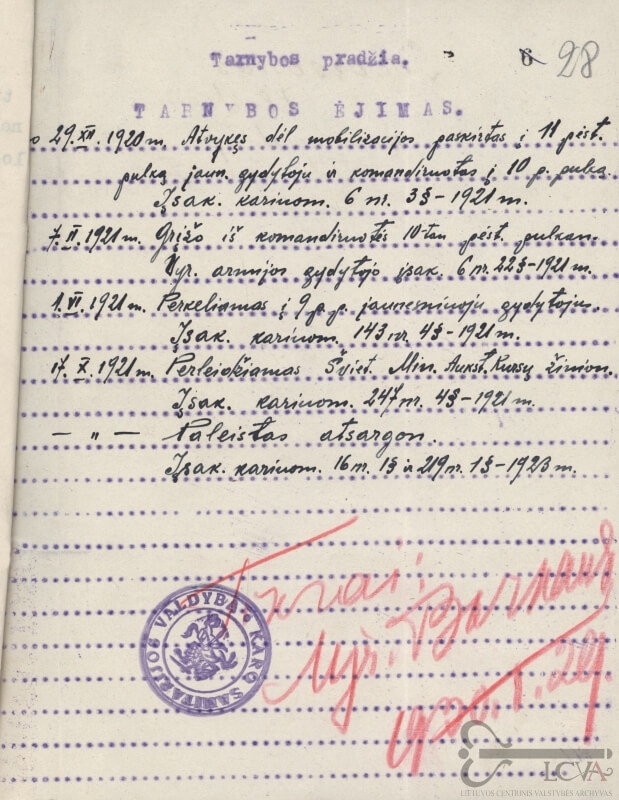 Tarnybos pradžia.
6 28
TARNYBOS ĖJIMAS.
29.XII.1920 m. Atvykęs dėl mobilizacijos paskirtas į 11 pėst.
pulką jaun. gydytoju ir komandiruotas į 10 p. pulką.
Įsak. kariuom. 6 nr. 3§-1921 m.
7.II.1921 m. Grįžo iš komandiruotės 10-tan pėst. pulkan.
Vyr. armijos gydytojo įsak. 6 nr. 22§-1921 m.
1.VI.1921 m. Perkeliamas į 9 p.p. jaunesniuoju gydytoju.
Įsak. kariuom. 143 nr. 4§-1921 m.
17.X.1921 m. Perleidžiamas Šviet. Min. Aukst. Kursų žinion.
Įsak. kariuom. 247 nr. 4§-1921 m.
— „ — Paleistas atsargon.
Įsak. kariuom. 16 nr. 1§ ir 219 nr. 1§-1923 m.
KARO SANITARIJOS VALDYBA
LCVA
LIETUVOS CENTRINIS VALSTYBĖS ARCHYVAS